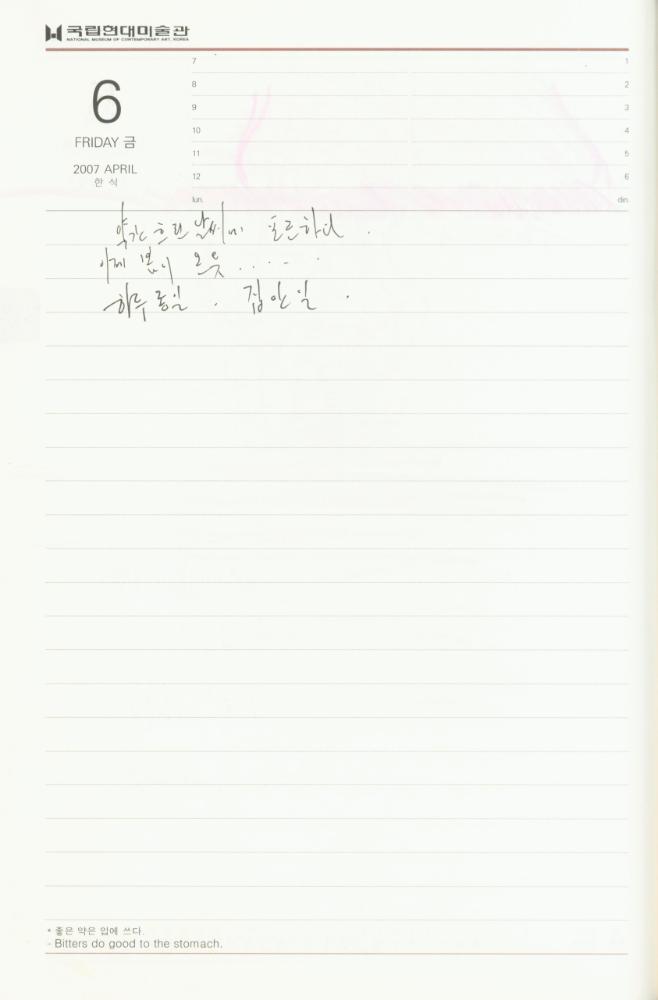 국립현대미술관
NATIONAL MUSEUM OF CONTEMPORARY ART, KOREA
6
FRIDAY 금
2007 APRIL
한 식
7 1
8 2
9 3
10 4
11 5
12 6
lun. din.
약간 흐린 날씨이 포근하다.
이제 봄이 오옷.....
하루 종일. 집안일.
* 좋은 약은 입에 쓰다.
- Bitters do good to the stomach.